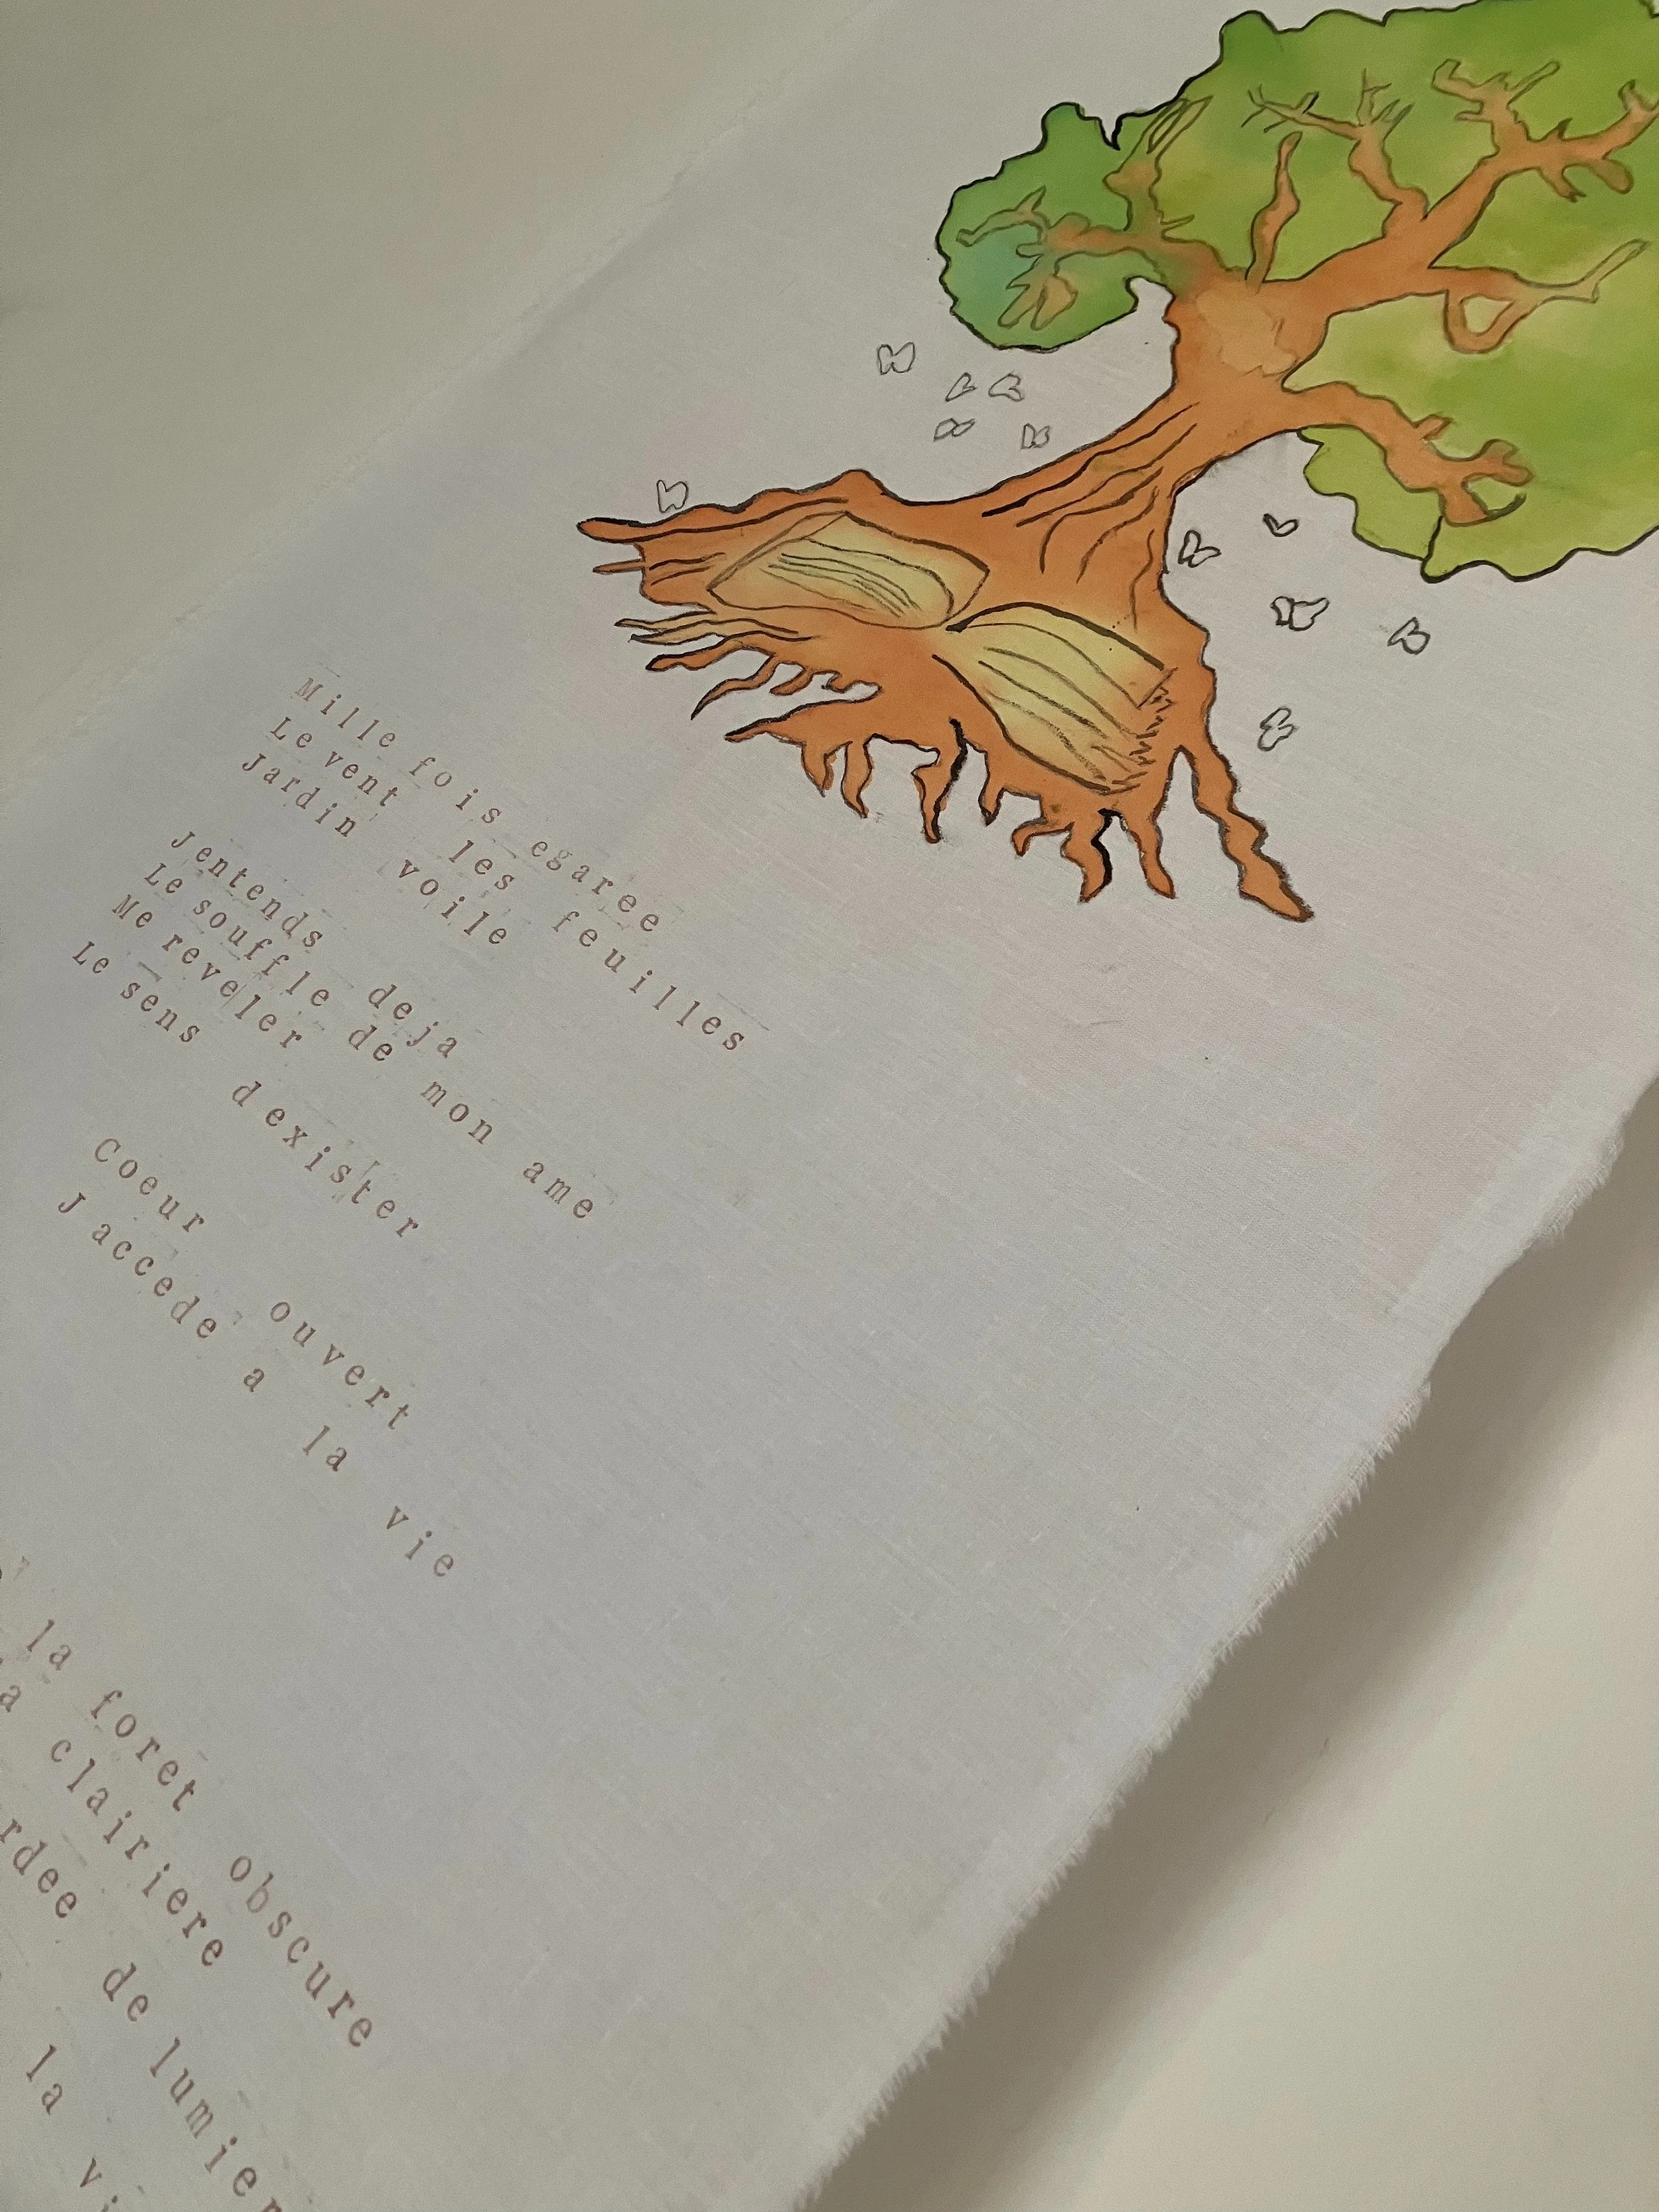 Mille fois egaree
Le vent les feuilles
Jardin voile
Jentends deja
Le souffle de mon ame
Me reveler
Le sens dexister
Coeur ouvert
J accede a la vie
la foret obscure
clairiere
de
la